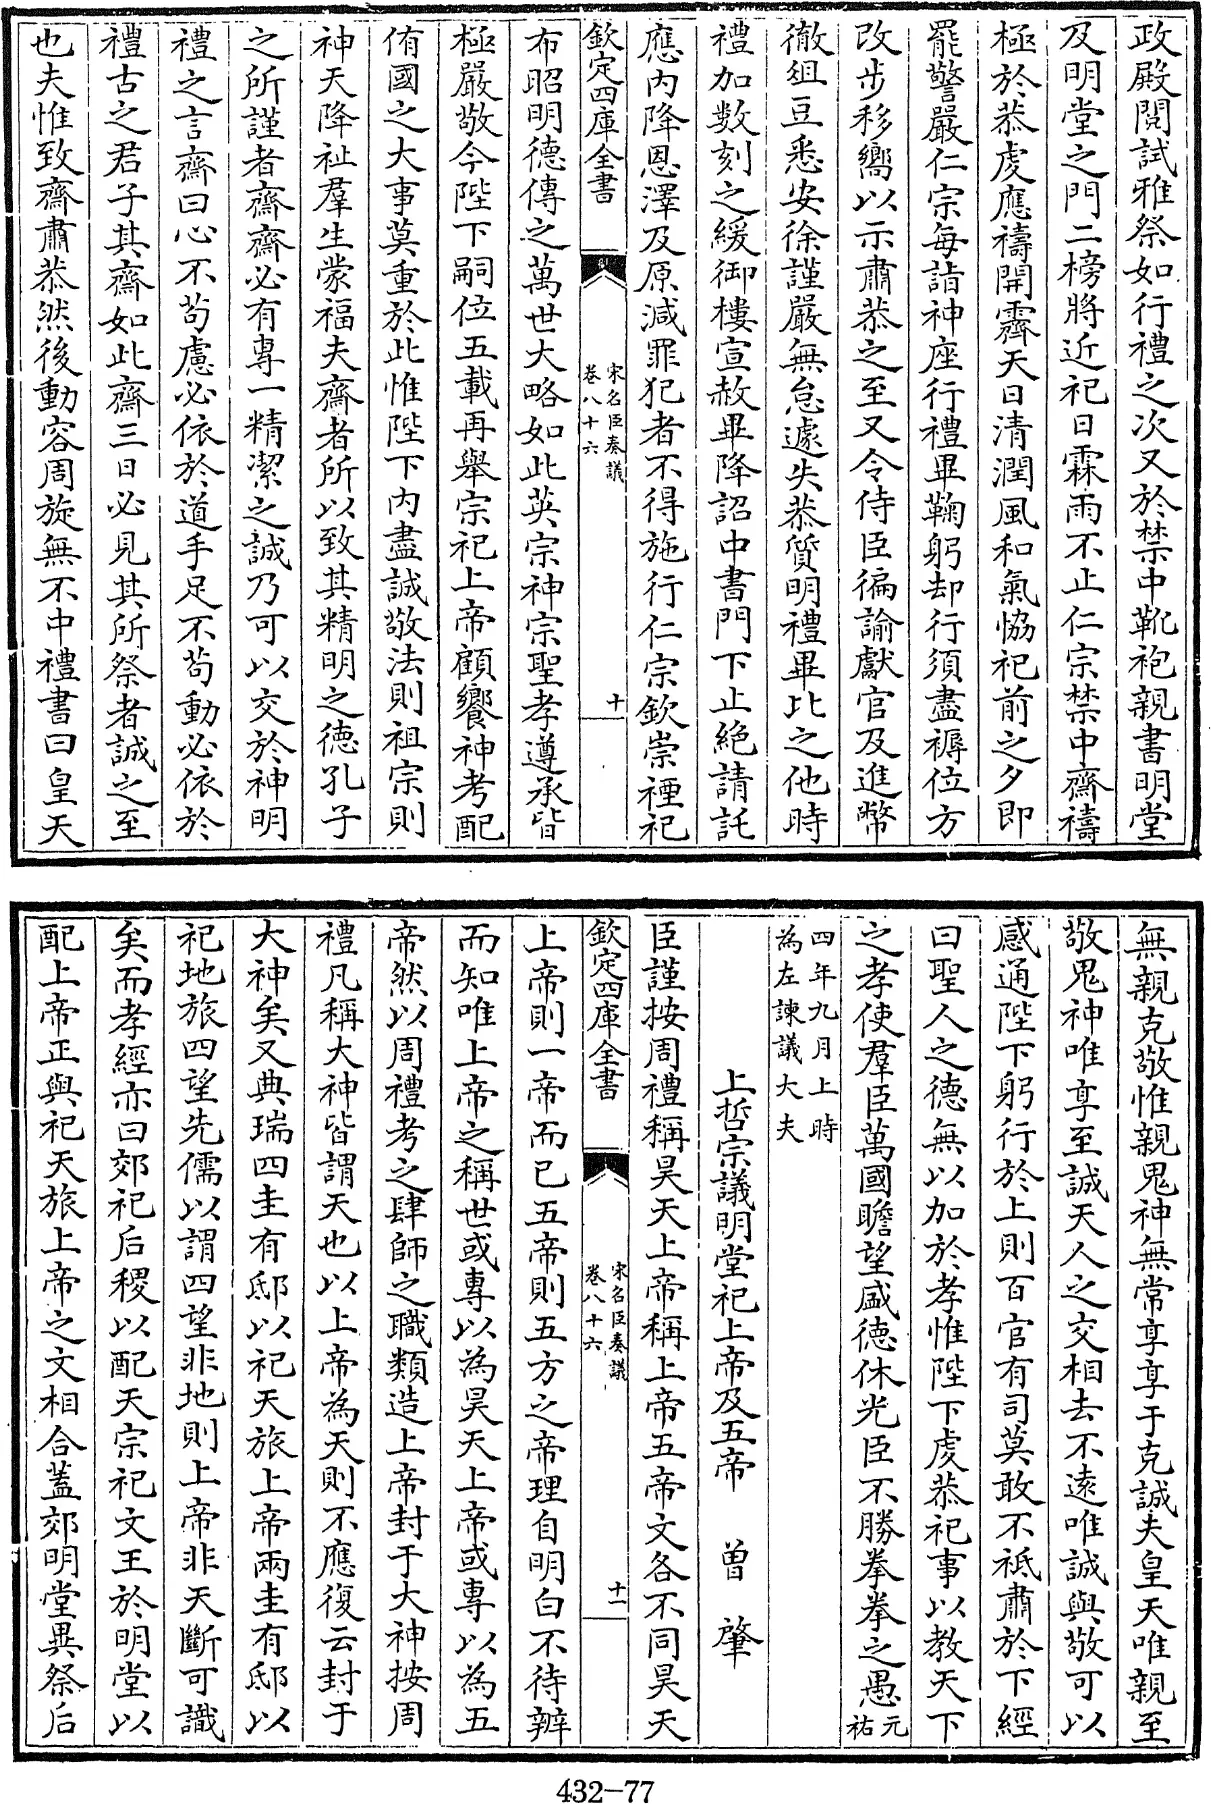 政殿閱試雅祭如行禮之次又於禁中靴袍親書明堂
及明堂之門二榜將近祀日霖雨不止仁宗禁中齋禱
極於恭虔應禱開霽天日清潤風和氣恊祀前之夕即
罷警嚴仁宗每詣神座行禮畢鞠躬却行須盡褥位方
改步移嚮以示肅恭之至又令侍臣徧諭獻官及進幣
徹俎豆悉安徐謹嚴無怠遽失恭質明禮畢比之他時
禮加數刻之緩御樓宣赦畢降詔中書門下止絶請託
應内降恩澤及原減罪犯者不得施行仁宗欽崇禋祀
欽定四庫全書
宋名臣奏議
卷八十六
十
布昭明德傳之萬世大略如此英宗神宗聖孝遵承皆
極嚴敬今陛下嗣位五載再舉宗祀上帝顧饗神考配
侑國之大事莫重於此惟陛下内盡誠敬法則祖宗則
神天降祉羣生蒙福夫齋者所以致其精明之德孔子
之所謹者齋齋必有專一精潔之誠乃可以交於神明
禮之言齋曰心不苟慮必依於道手足不苟動必依於
禮古之君子其齋如此齋三日必見其所祭者誠之至
也夫惟致齋肅恭然後動容周旋無不中禮書曰皇天
無親克敬惟親鬼神無常享享于克誠夫皇天唯親至
敬鬼神唯享至誠天人之交相去不遠唯誠與敬可以
感通陛下躬行於上則百官有司莫敢不祗肅於下經
曰聖人之德無以加於孝惟陛下虔恭祀事以教天下
之孝使羣臣萬國瞻望盛德休光臣不勝拳拳之愚元祐
四年九月上時
為左諫議大夫
上哲宗議明堂祀上帝及五帝 曾肇
臣謹按周禮稱昊天上帝稱上帝五帝文各不同昊天
欽定四庫全書
宋名臣奏議
卷八十六
十一
上帝則一帝而已五帝則五方之帝理自明白不待辨
而知唯上帝之稱世或專以為昊天上帝或專以為五
帝然以周禮考之肆師之職類造上帝封于大神按周
禮凡稱大神皆謂天也以上帝為天則不應復云封于
大神矣又典瑞四圭有邸以祀天旅上帝兩圭有邸以
祀地旅四望先儒以謂四望非地則上帝非天斷可識
矣而孝經亦曰郊祀后稷以配天宗祀文王於明堂以
配上帝正與祀天旅上帝之文相合蓋郊明堂異祭后
432-77